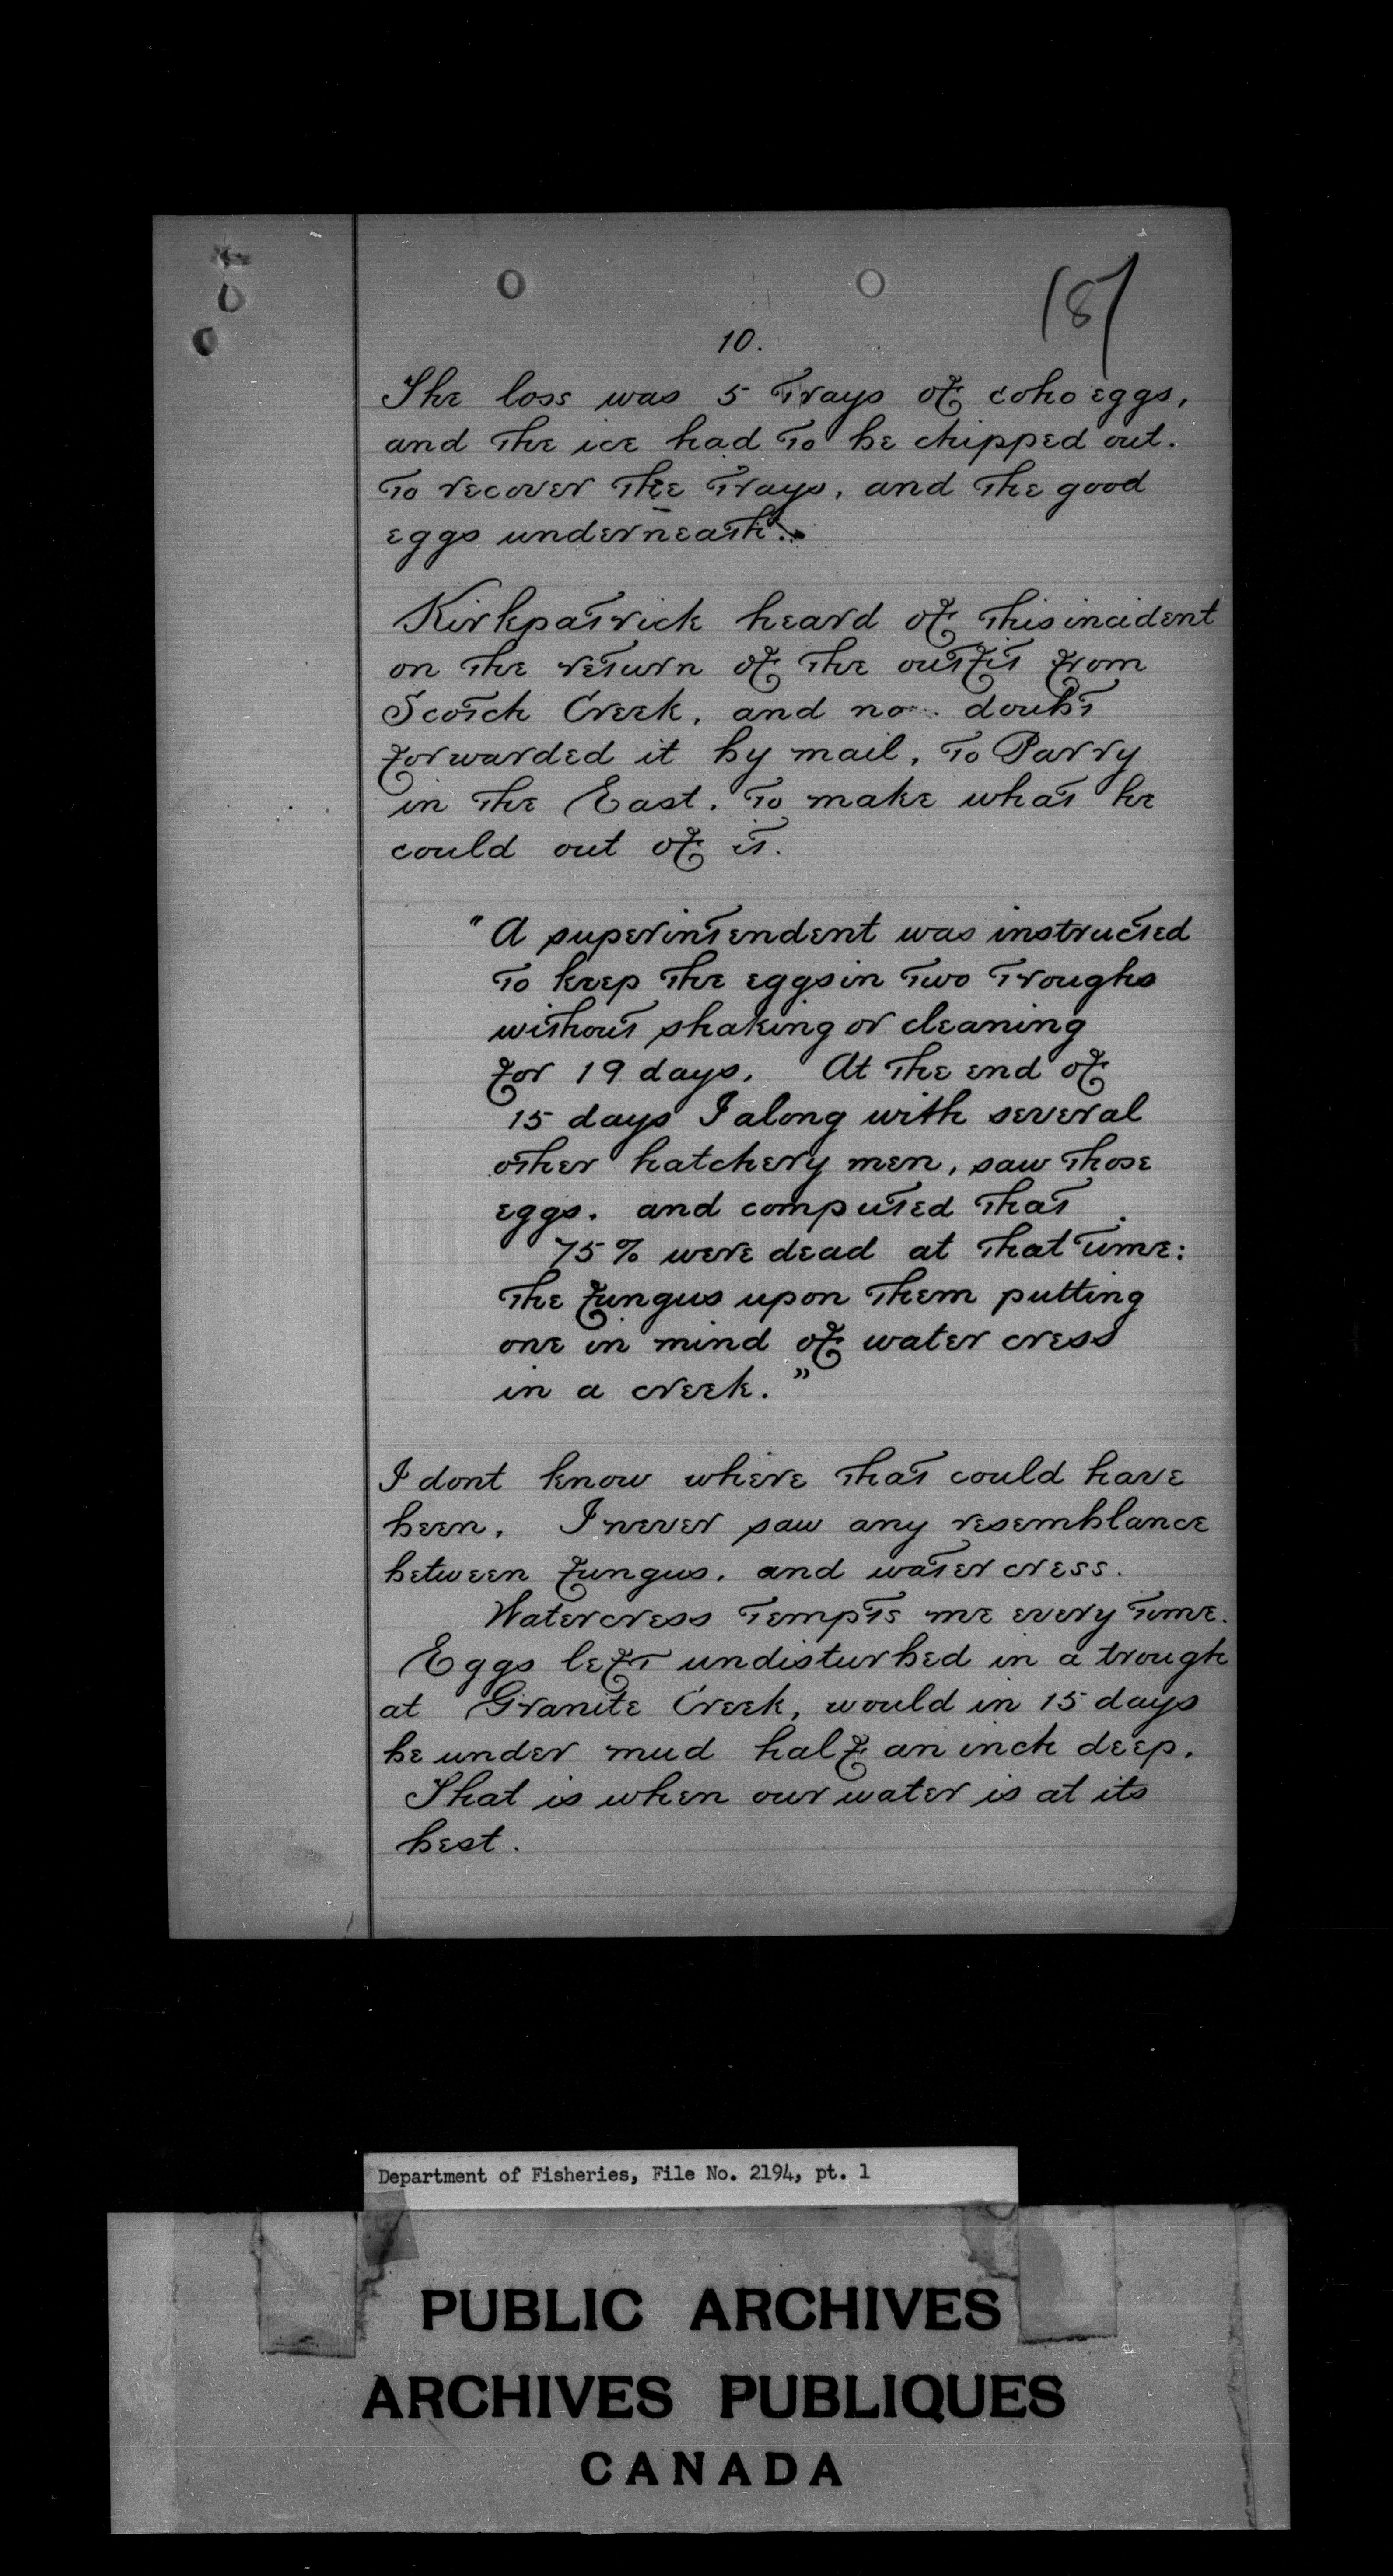 (8)
10.
The loss was 5 trays of coho eggs,
and the ice had to be chipped out.
to recover the trays, and the good
eggs underneath.
Kirkpatrick heard of this incident
on the return of the outfit from
Scotch Creek, and no doubt
forwarded it by mail, to Parry
in the East, to make what he
could out of it.
"A superintendent was instructed
to keep the eggs in two troughs
without shaking or cleaning
for 19 days. At the end of
15 days I along with several
other hatchery men, saw those
eggs. and computed that
75% were dead at that time:
the fungus upon them putting
one in mind of water cress
in a creek."
I dont know where that could have
been. I never saw any resemblance
between fungus. and water cress.
Watercress tempts me every time.
Eggs left undisturbed in a trough
at Granite Creek, would in 15 days
be under mud half an inch deep.
That is when our water is at its
best.
Department of Fisheries, File No. 2194, pt. 1
PUBLIC ARCHIVES
ARCHIVES PUBLIQUES
CANADA